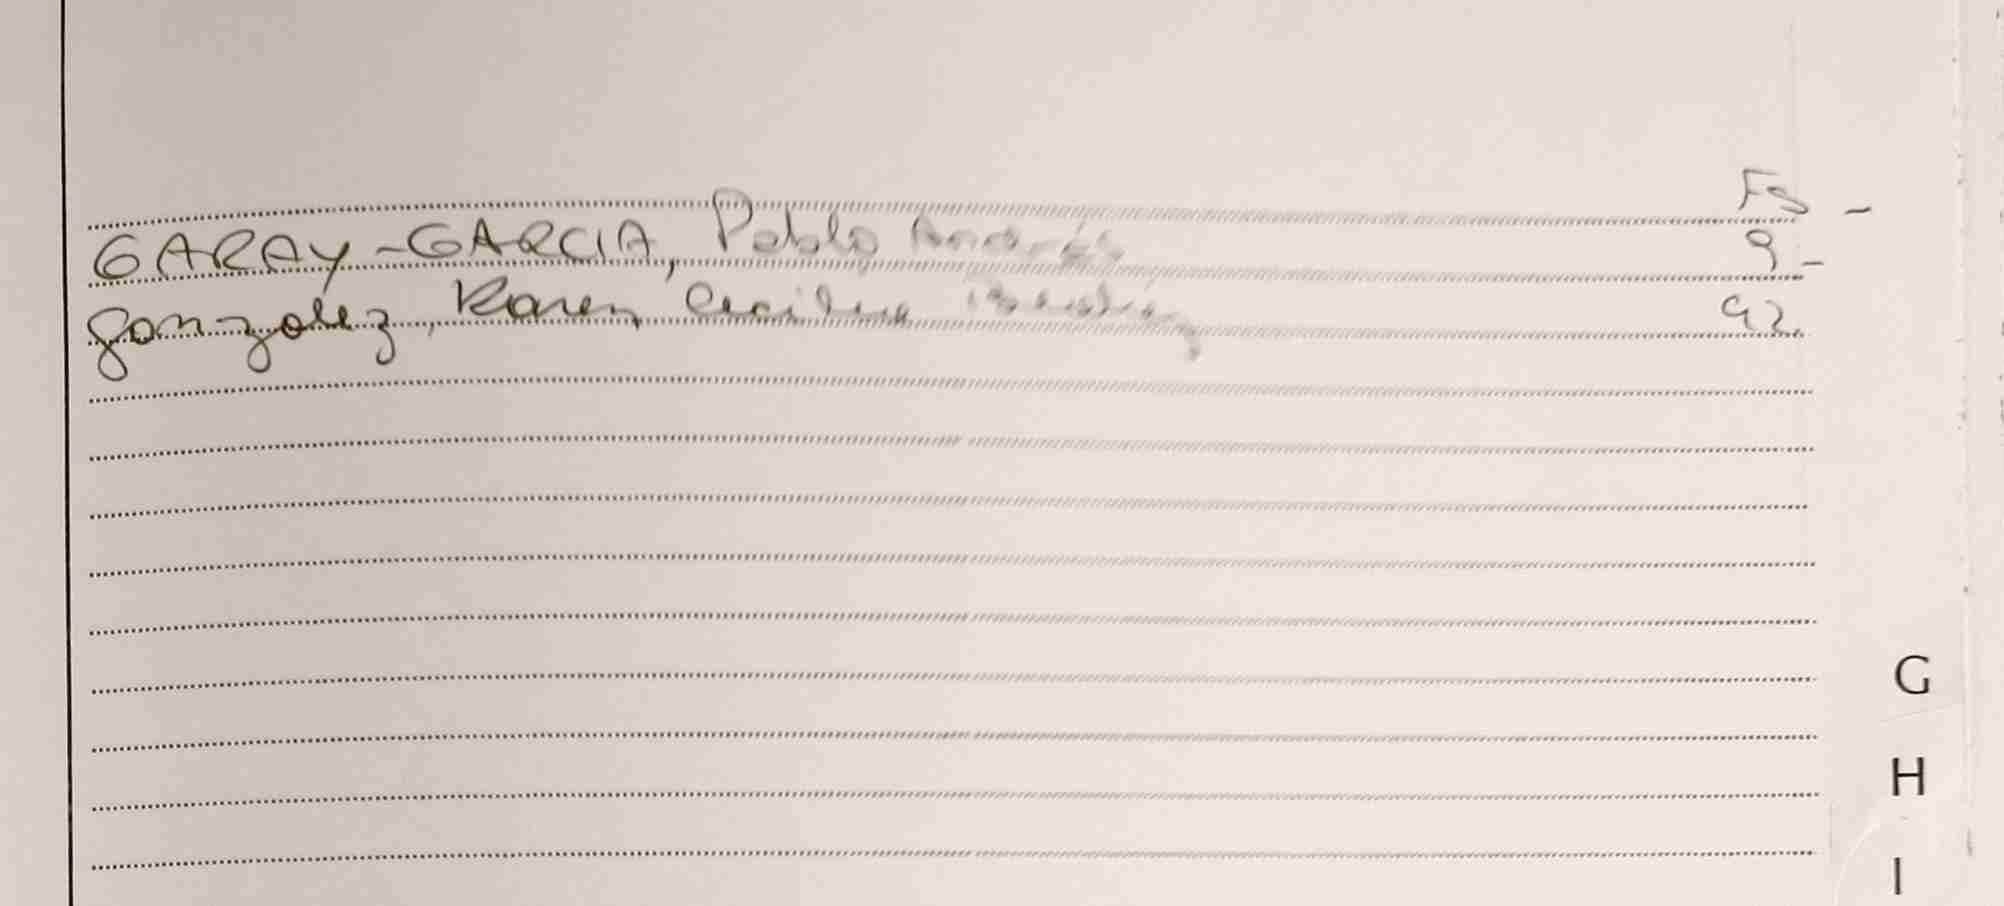 Fs -
GARAY-GARCIA, Pablo Andrés 9-
Gonzalez, Karen Cecilia 92
G
H
I